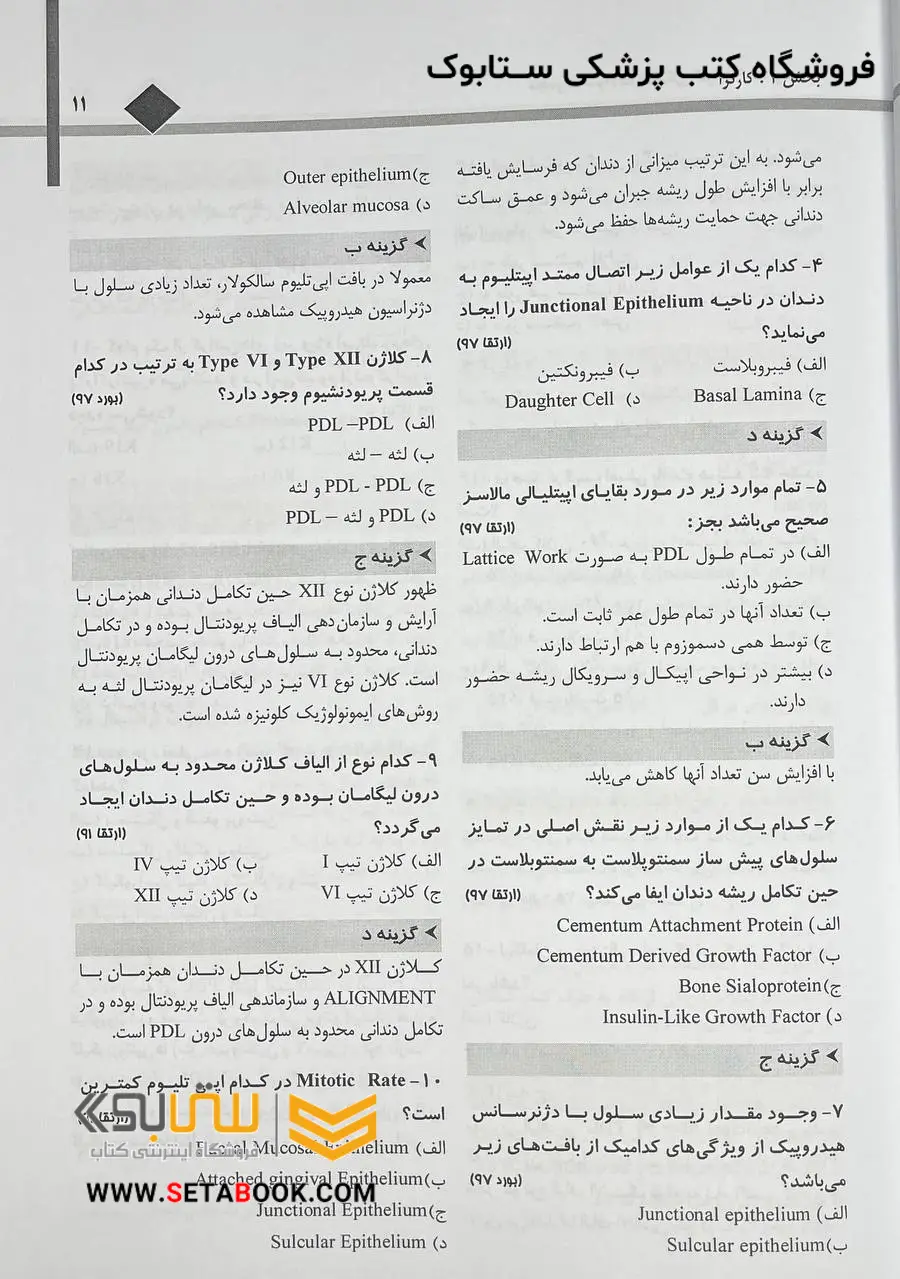 فروشگاه کتب پزشکی ستابوک
۱۱
می‌شود. به این ترتیب میزانی از دندان که فرسایش یافته
برابر با افزایش طول ریشه جبران می‌شود و عمق ساکت
دندانی جهت حمایت ریشه‌ها حفظ می‌شود.
۴- کدام یک از عوامل زیر اتصال ممتد اپیتلیوم به
دندان در ناحیه Junctional Epithelium را ایجاد
می‌نماید؟ (ارتقا ۹۷)
الف) فیبروبلاست ب) فیبرونکتین
ج) Basal Lamina د) Daughter Cell
گزینه د
۵- تمام موارد زیر در مورد بقایای اپیتلیالی مالاسز
صحیح می‌باشد بجز: (ارتقا ۹۷)
الف) در تمام طول PDL به صورت Lattice Work
حضور دارند.
ب) تعداد آنها در تمام طول عمر ثابت است.
ج) توسط همی دسموزوم با هم ارتباط دارند.
د) بیشتر در نواحی اپیکال و سرویکال ریشه حضور
دارند.
گزینه ب
با افزایش سن تعداد آنها کاهش می‌یابد.
۶- کدام یک از موارد زیر نقش اصلی در تمایز
سلول‌های پیش ساز سمنتوپلاست به سمنتوبلاست در
حین تکامل ریشه دندان ایفا می‌کند؟ (ارتقا ۹۷)
الف) Cementum Attachment Protein
ب) Cementum Derived Growth Factor
ج)Bone Sialoprotein
د) Insulin-Like Growth Factor
گزینه ج
۷- وجود مقدار زیادی سلول با دژنرسانس
هیدروپیک از ویژگی‌های کدامیک از بافت‌های زیر
می‌باشد؟ (بورد ۹۷)
الف) Junctional epithelium
ب)Sulcular epithelium
ج)Outer epithelium
د) Alveolar mucosa
گزینه ب
معمولا در بافت اپی‌تلیوم سالکولار، تعداد زیادی سلول با
دژنراسیون هیدروپیک مشاهده می‌شود.
۸- کلاژن Type XII و Type VI به ترتیب در کدام
قسمت پریودنشیوم وجود دارد؟ (بورد ۹۷)
الف) PDL –PDL
ب) لثه – لثه
ج) PDL - PDL و لثه
د) PDL و لثه – PDL
گزینه ج
ظهور کلاژن نوع XII حین تکامل دندانی همزمان با
آرایش و سازمان‌دهی الیاف پریودنتال بوده و در تکامل
دندانی، محدود به سلول‌های درون لیگامان پریودنتال
است. کلاژن نوع VI نیز در لیگامان پریودنتال لثه به
روش‌های ایمونولوژیک کلونیزه شده است.
۹- کدام نوع از الیاف کلاژن محدود به سلول‌های
درون لیگامان بوده و حین تکامل دندان ایجاد
می‌گردد؟ (ارتقا ۹۱)
الف) کلاژن تیپ I ب) کلاژن تیپ IV
ج) کلاژن تیپ VI د) کلاژن تیپ XII
گزینه د
کلاژن XII در حین تکامل دندان همزمان با
ALIGNMENT و سازماندهی الیاف پریودنتال بوده و در
تکامل دندانی محدود به سلول‌های درون PDL است.
۱۰- Mitotic Rate در کدام اپی تلیوم کمترین
است؟
الف)
ب)Attached gingival Epithelium
ج)Junctional Epithelium
د) Sulcular Epithelium
ستابوک
فروشگاه اینترنتی کتاب
WWW.SETABOOK.COM